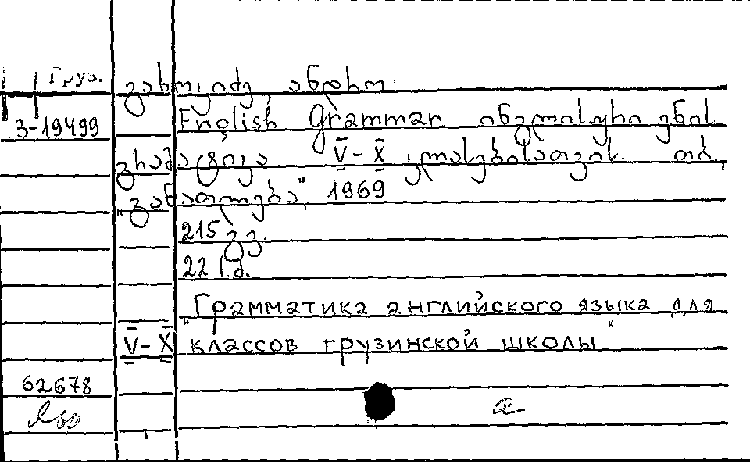 Груз.
3-19499
English Grammar ინგლისური ენის
გრამატიკა V-X კლასებისათვის თბ.
"განათლება", 1969
215 გვ.
22 სმ.
"Грамматика английского языка для
V-X классов грузинской школы"
62678